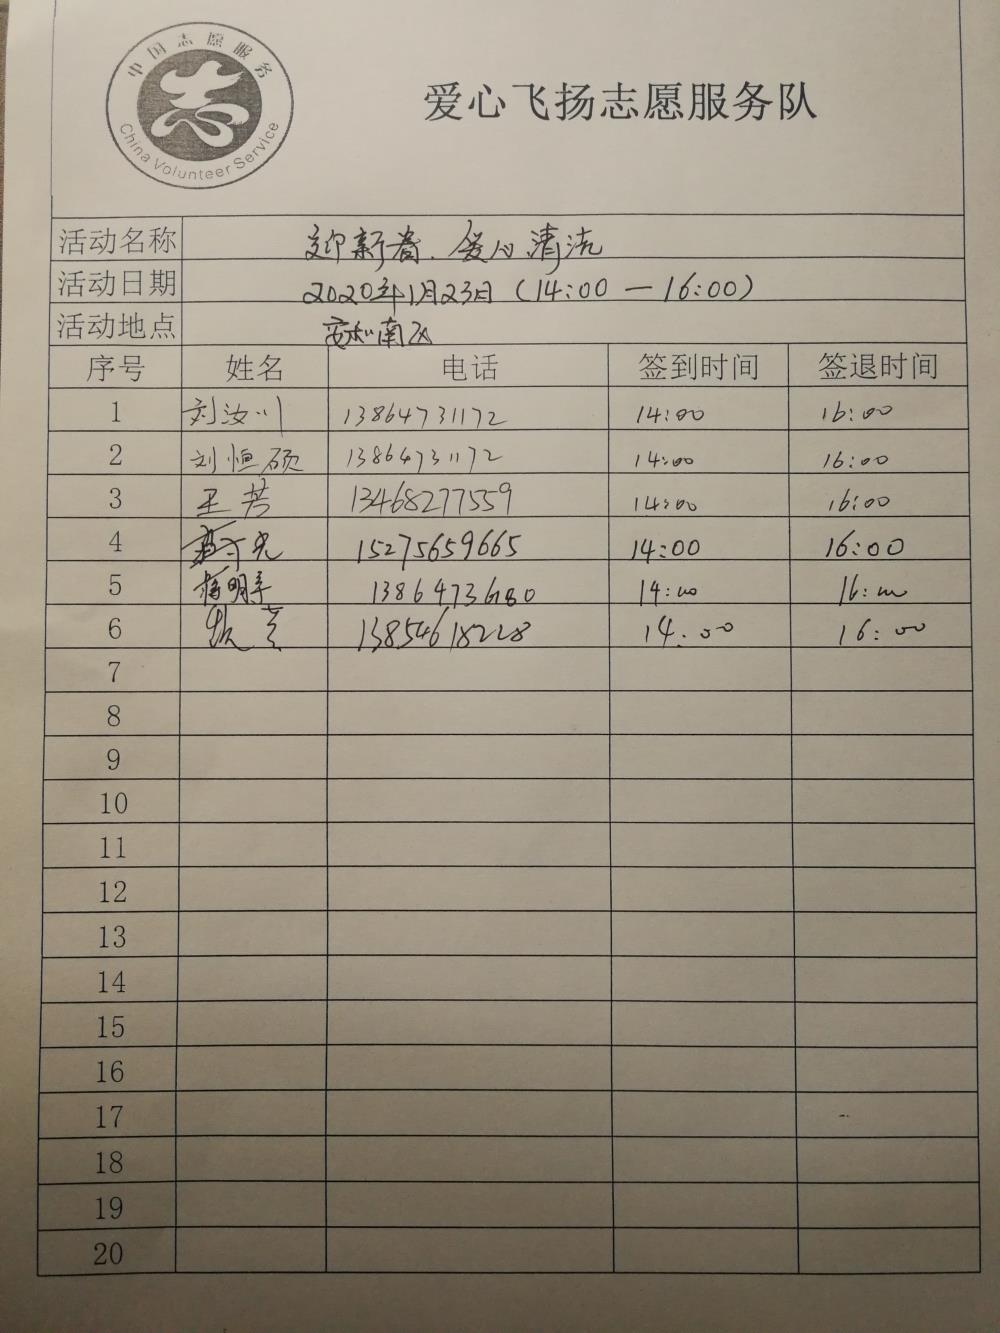 中国志愿服务
China Volunteer Service
爱心飞扬志愿服务队
活动名称 迎新春、爱心清洁
活动日期 2020年1月23日（14:00—16:00）
活动地点 安和南区
序号 姓名 电话 签到时间 签退时间
1 刘汝川 13864731172 14:00 16:00
2 刘恒硕 13864731172 14:00 16:00
3 王芳 13468277559 14:00 16:00
4 15275659665 14:00 16:00
5 杨明 14:00 16:00
6 13854618228 14:00 16:00
7
8
9
10
11
12
13
14
15
16
17
18
19
20